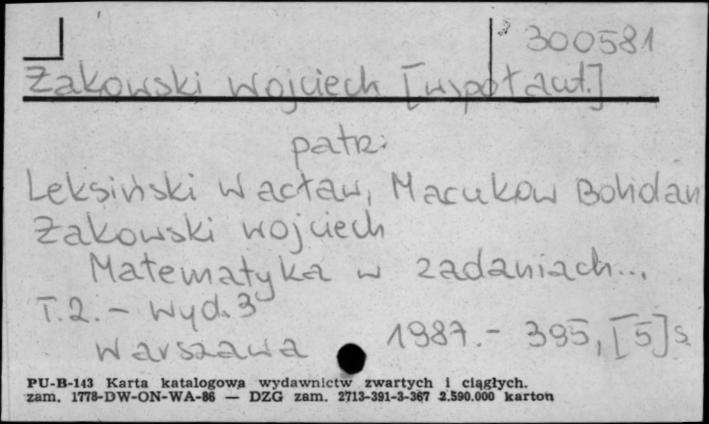 300581
Żakowski Wojciech [współaut.]
patrz:
Leksiński Wacław, Macukow Bohdan
Żakowski Wojciech
Matematyka w zadaniach...
T.2. - Wyd. 3
Warszawa 1987. - 395, [5] s.
PU-B-143 Karta katalogowa wydawnictw zwartych i ciągłych.
zam. 1778-DW-ON-WA-86 — DZG zam. 2713-391-3-367 2.590.000 karton